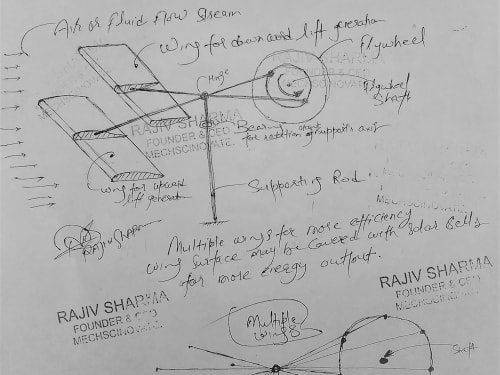 Air or fluid flow stream
Wing for downward lift generation
Flywheel
Hinge
Flywheel
shaft
RAJIV SHARMA
FOUNDER & CEO
MECHSCINOVATE.
Bearing
for rotation of supports axis
wing for upward
lift generation
Supporting Rod
Multiple wings for more efficiency
wing surface may be covered with solar cells
for more energy output.
RAJIV SHARMA
FOUNDER & CEO
MECHSCINOVATE.
RAJIV SHARMA
FOUNDER & CEO
MECHSCINOVATE.
Multiple
wings
Shaft